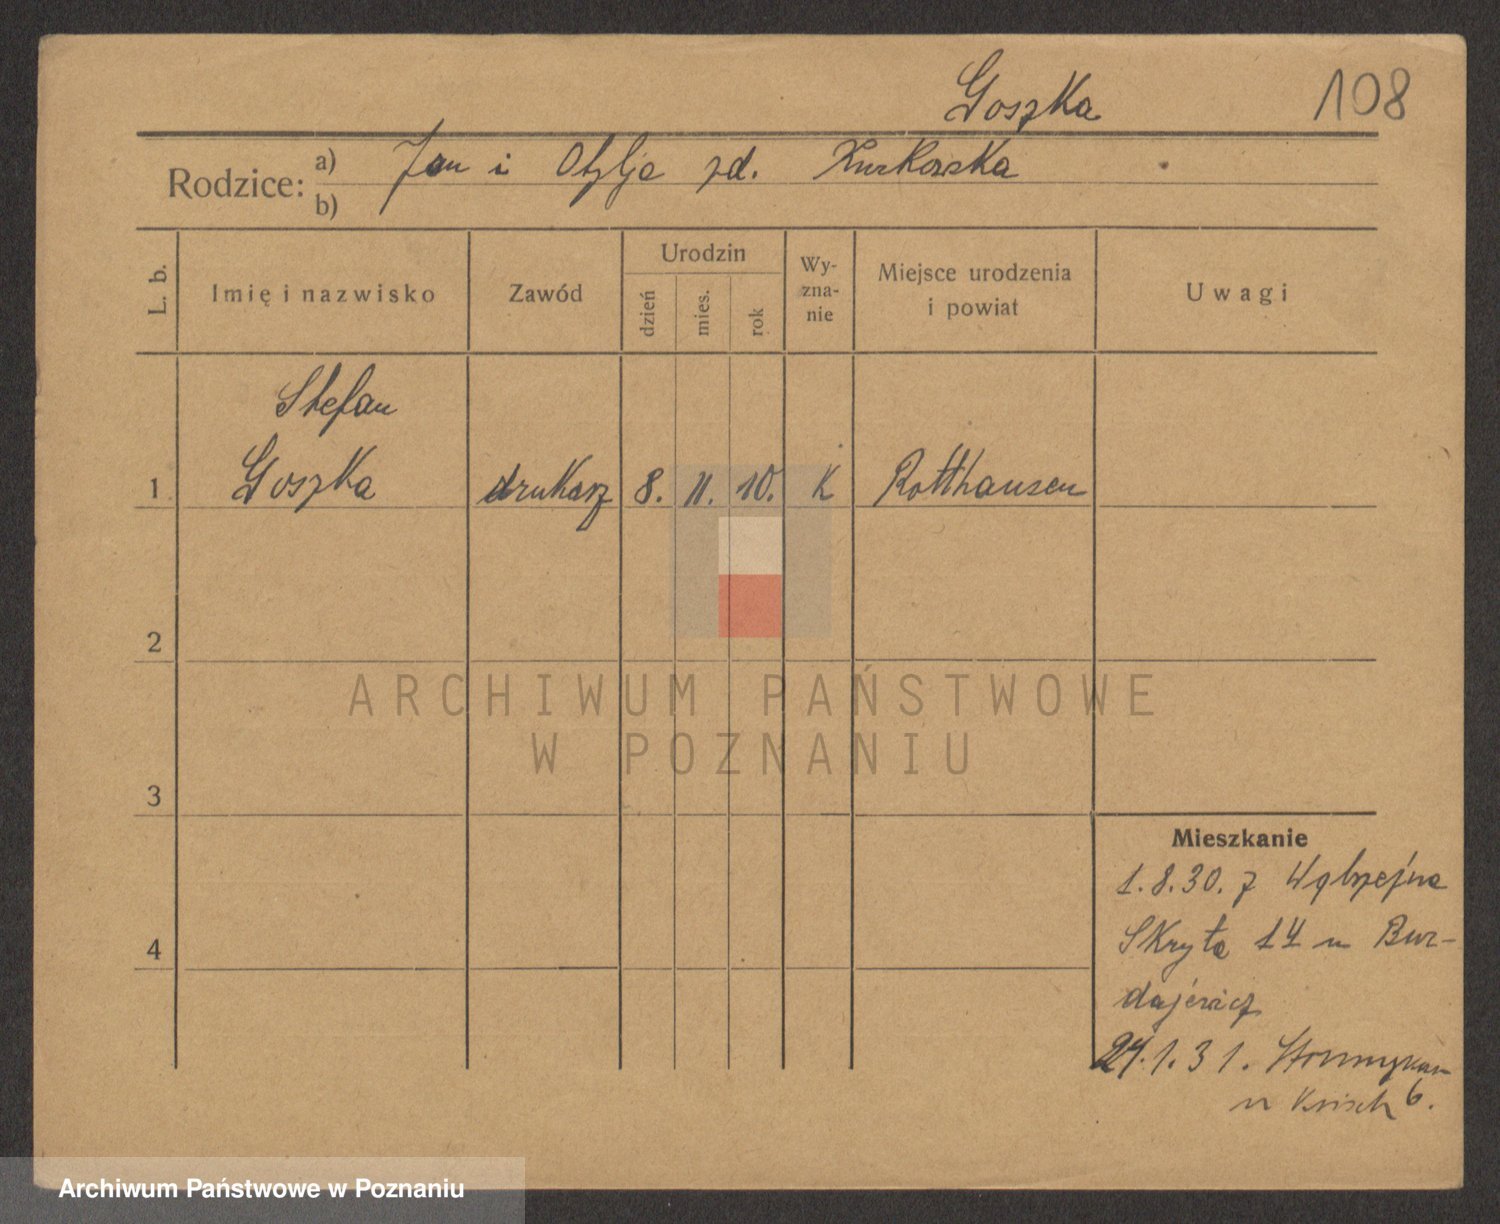 Goszka 108
Rodzice: a) Jan i Otylja zd. Kurkowska
b)
L. b. Imię i nazwisko Zawód Urodzin dzień mies. rok Wy-zna-nie Miejsce urodzenia i powiat Uwagi
Stefan
1 Goszka drukarz 8. 11. 10. K Rotthausen
2
ARCHIWUM PAŃSTWOWE
W POZNANIU
3
Mieszkanie
1.8.30. z Wąbrzeźna
4 Skryta 14 u Bur-
dajewicz
27.1.31.
u 6.
Archiwum Państwowe w Poznaniu